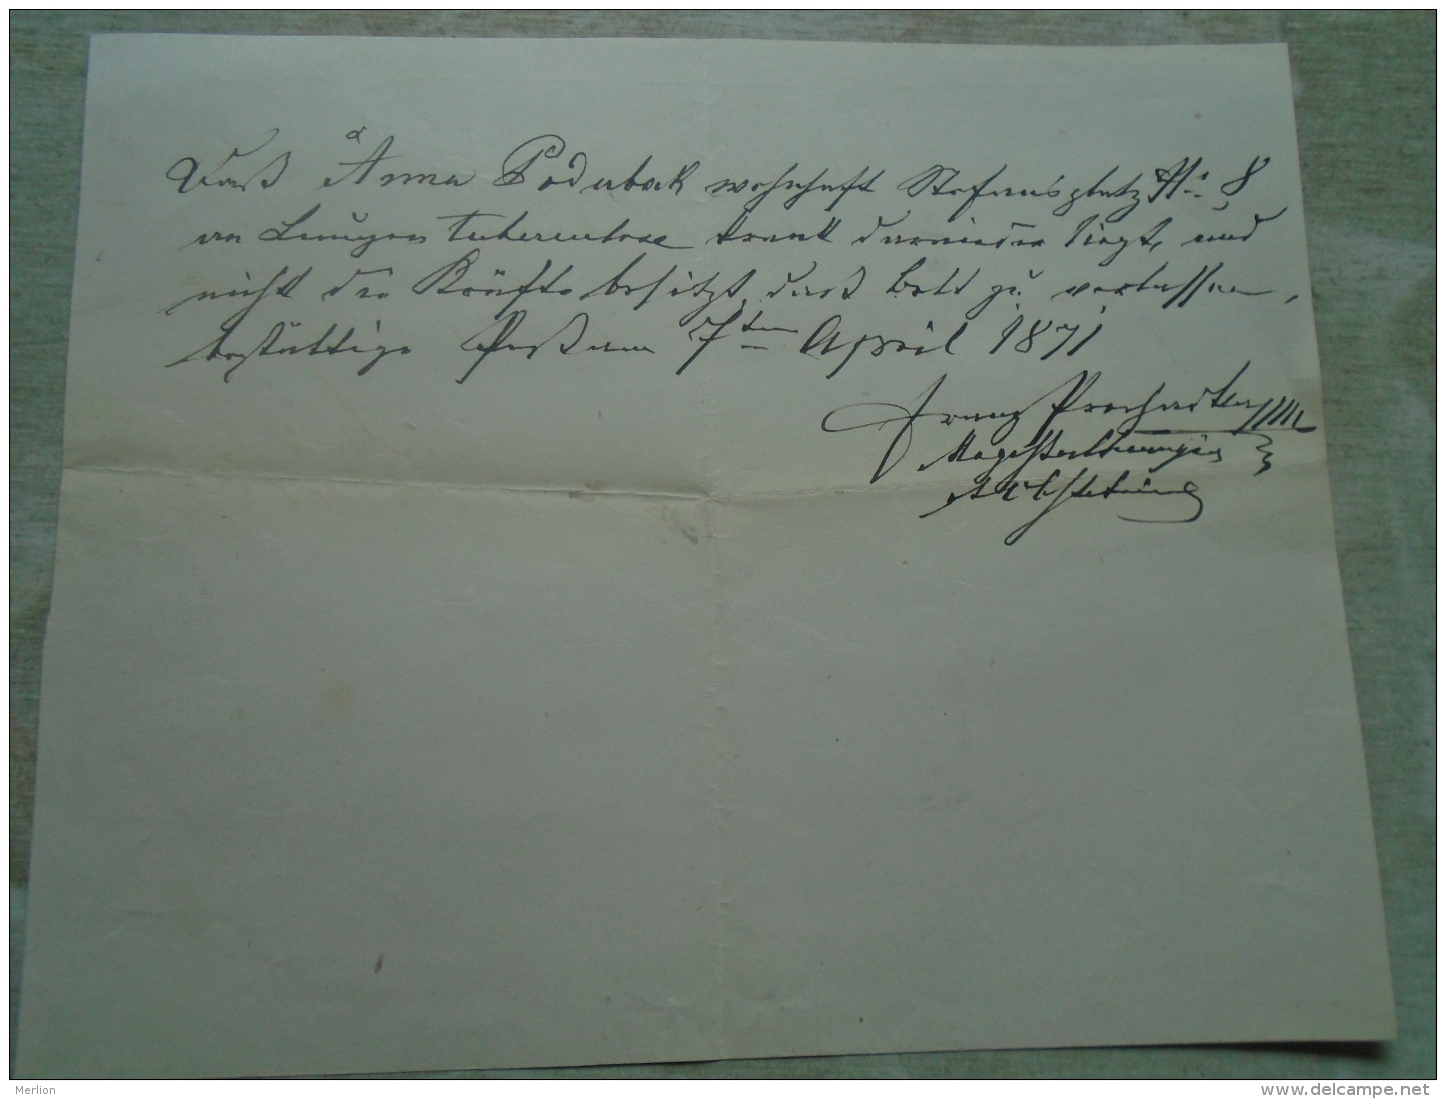 Daß Anna Poduback wohnhaft Stefansplatz No 8
an Lungen Tuberculose krank darnieder liegt, und
nicht die Kräfte besitzt daß Bett zu verlassen,
bestättige Pest am 7ten April 1871
Franz
Merlion
www.delcampe.net